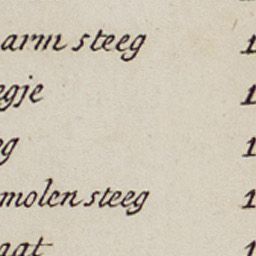 arm steeg 1
egje 1
eg 1
molen steeg 1
aat 1